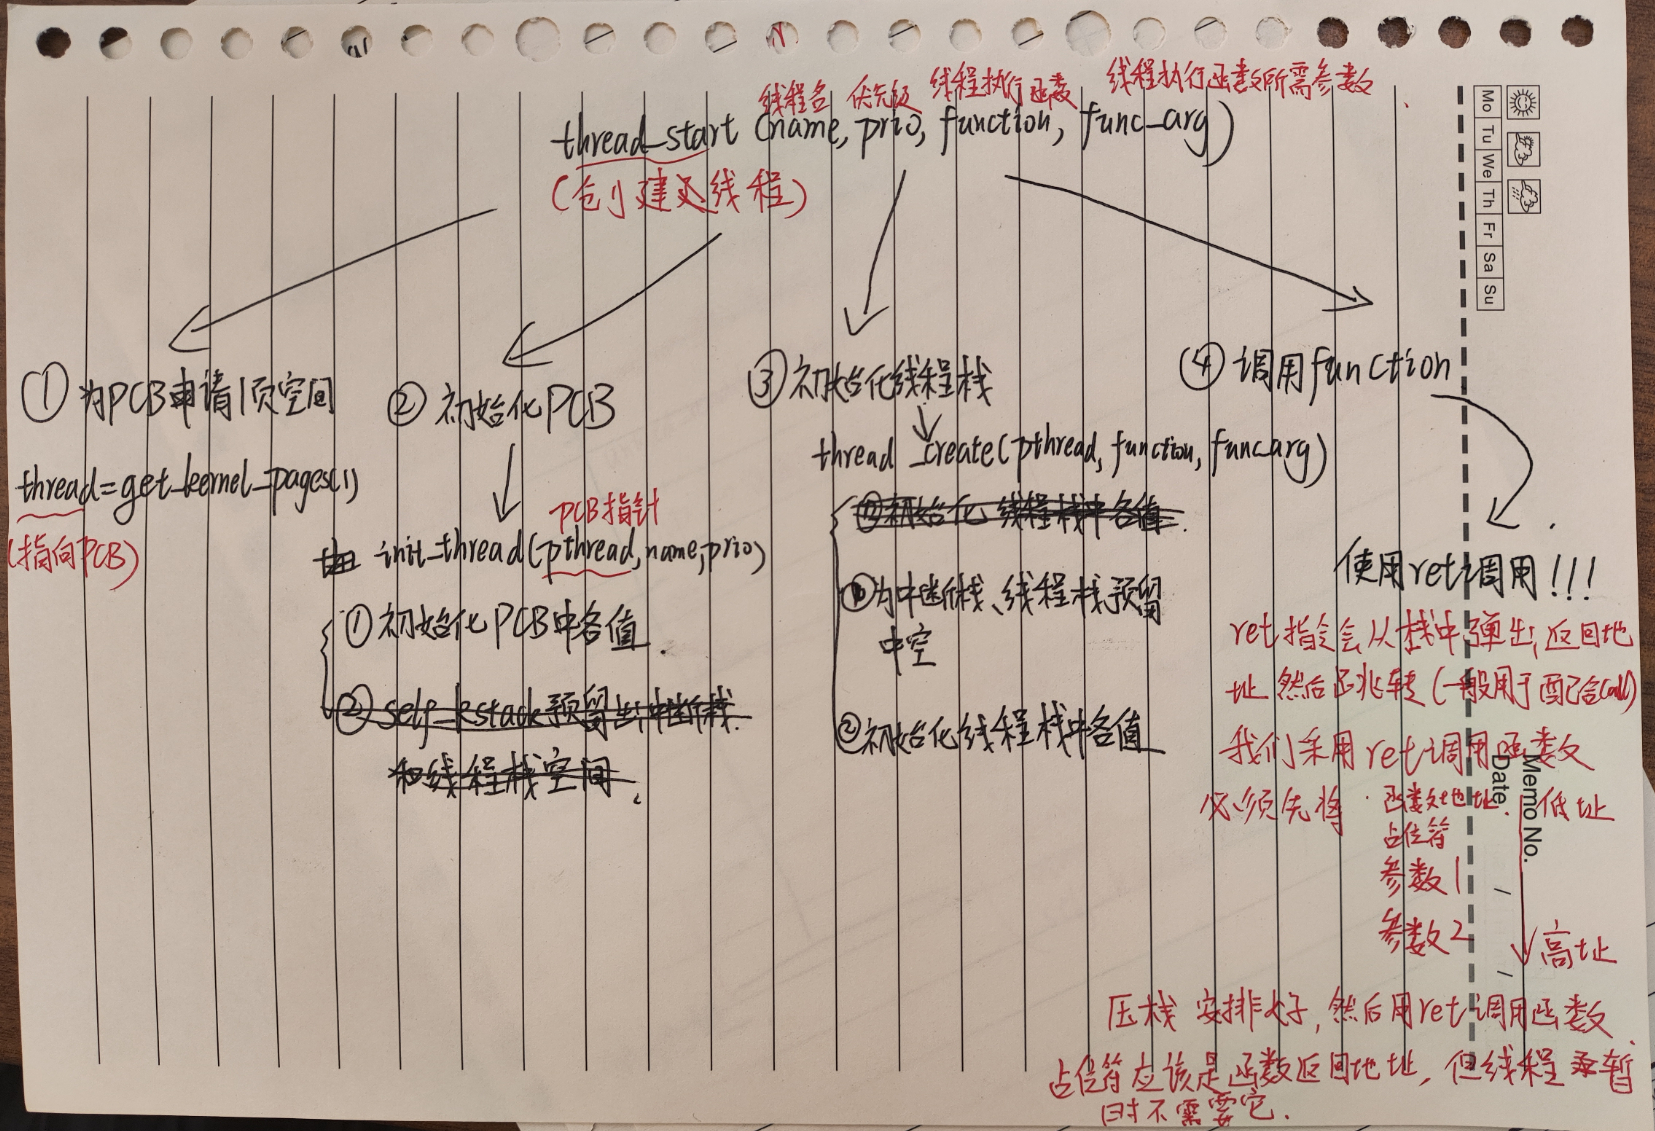 线程名 优先级 线程执行函数 线程执行函数所需参数
thread_start (name, prio, function, func_arg)
(创建这线程)
① 为PCB申请1页空间
thread=get_kernel_pages(1)
(指向PCB)
② 初始化PCB
PCB指针
init_thread(pthread,name,prio)
① 初始化PCB中各值
② self_kstack预留出中断栈
和线程栈空间
③ 初始化线程栈
thread_create(pthread, function, func_arg)
① 初始化 线程栈中各值
①为中断栈、线程栈预留
中空
②初始化线程栈中各值
④ 调用function
使用ret调用!!!
ret指令会从栈中弹出返回地
址 然后函兆转 (一般用于配合call)
我们采用ret调用函数
必须先将 函数地址 低址
占位符
参数1
参数2
高址
压栈 安排好, 然后用ret调用函数
占位符应该是函数返回地址, 但线程暂
时不需要它.
Mo Tu We Th Fr Sa Su
Memo No.
Date / /